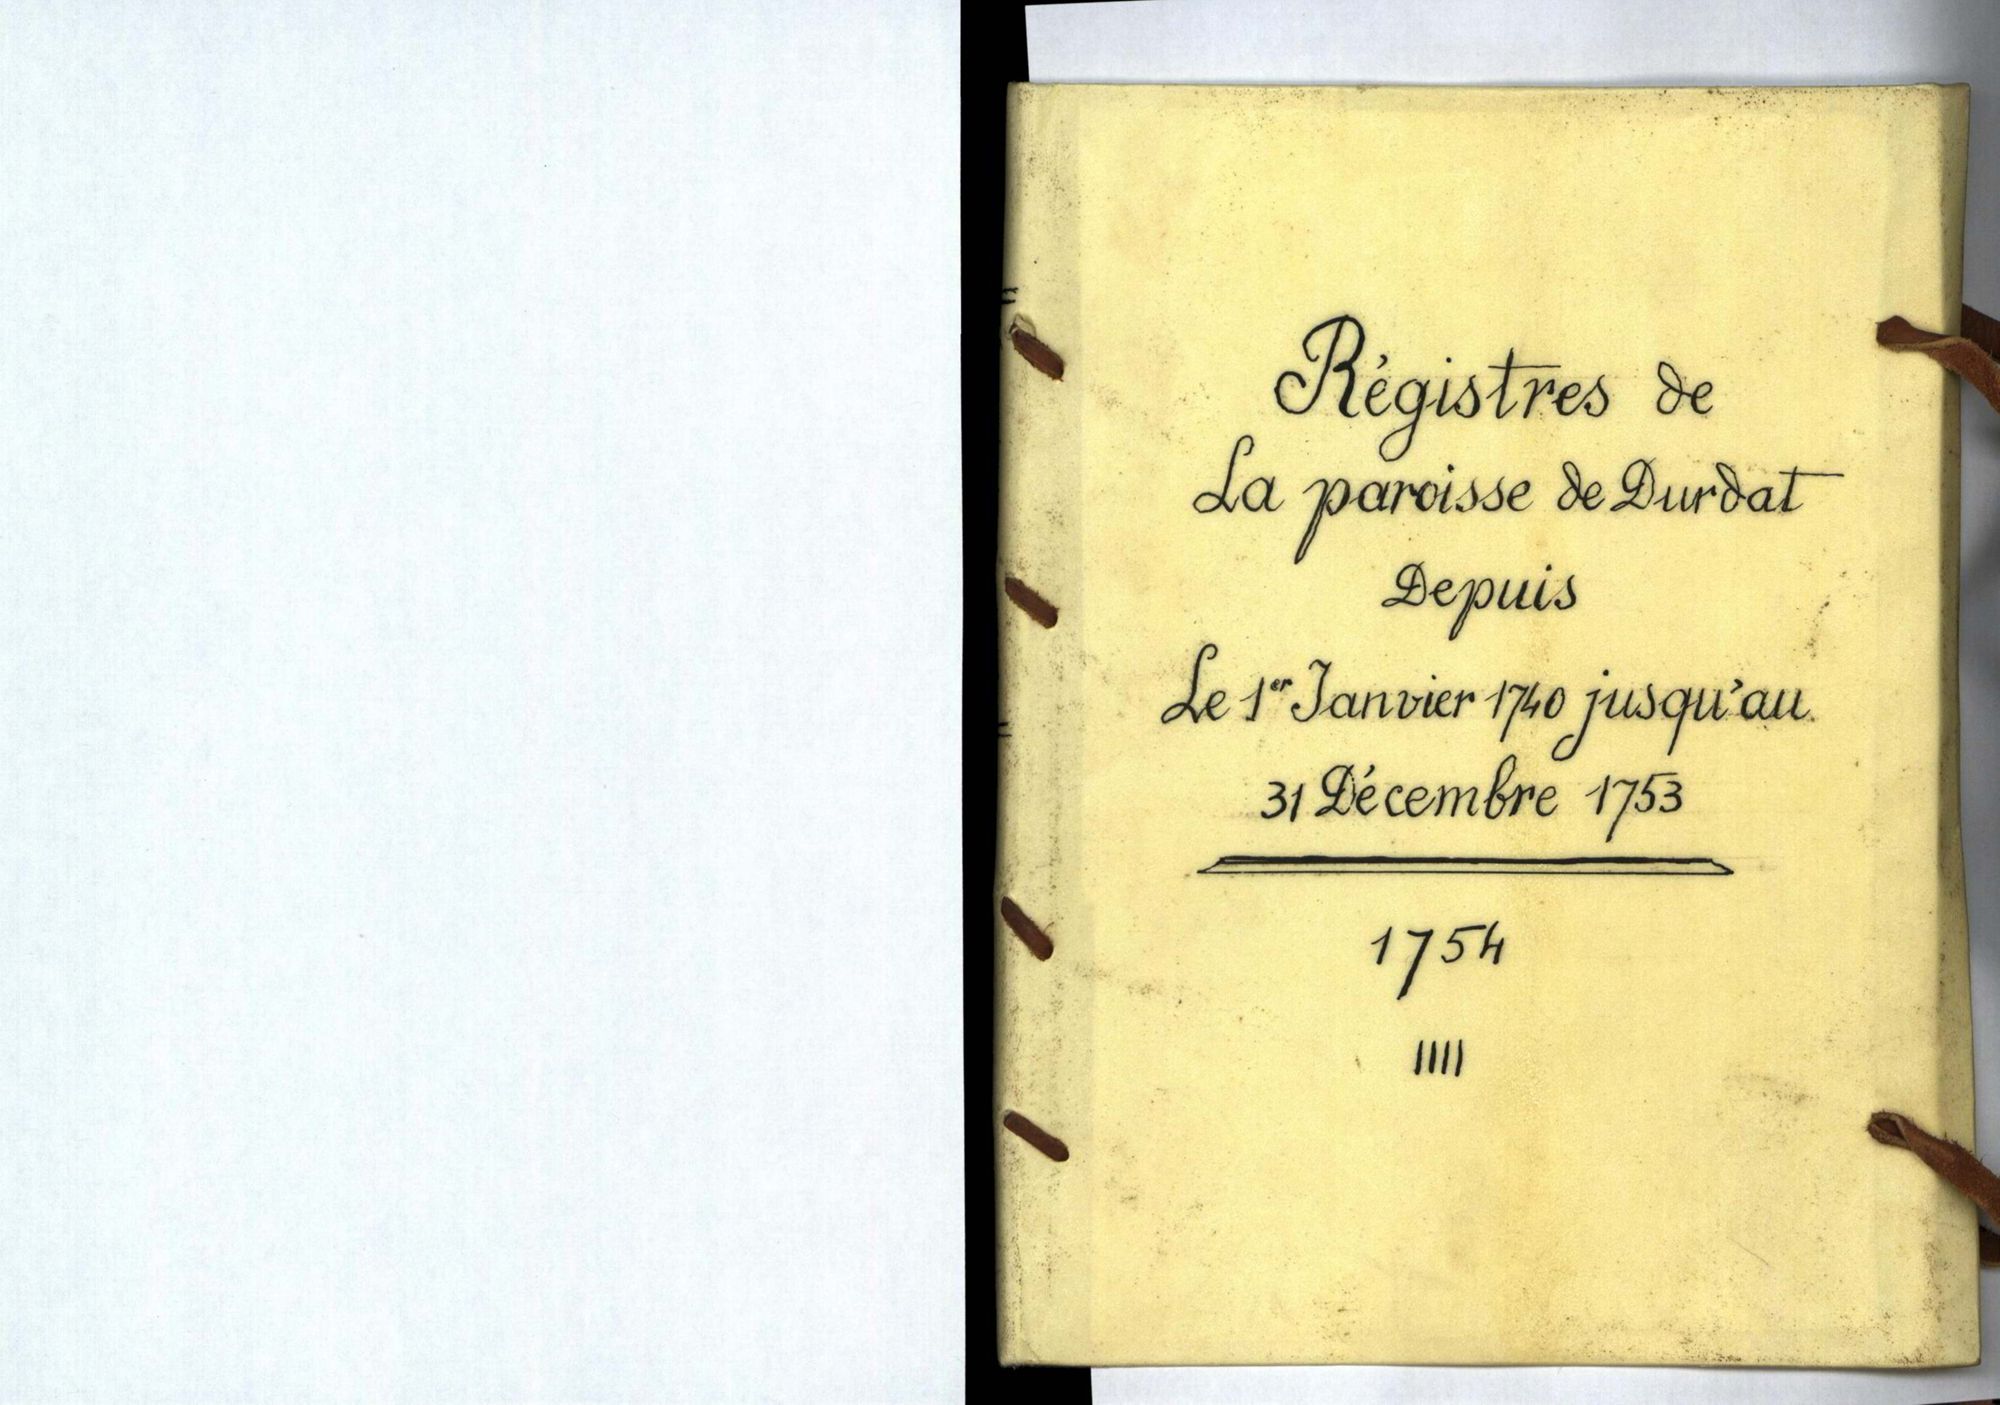 Régistres de
La paroisse de Durdat
Depuis
Le 1er Janvier 1740 jusqu'au
31 Décembre 1753
1754
IIII